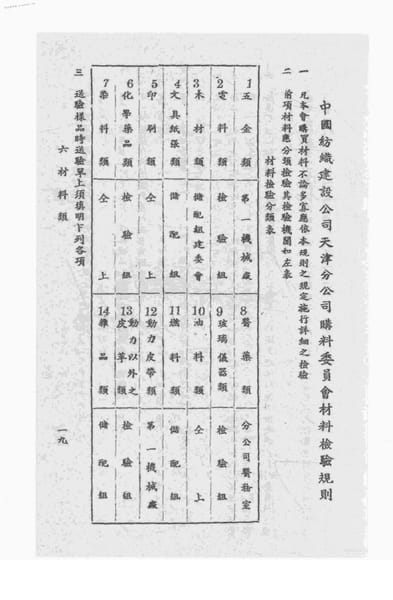 中國紡織建設公司天津分公司購料委員會材料檢驗規則
一 凡本會購買材料不論多寡應依本規則之規定施行詳細之檢驗
二 前項材料應分類檢驗其檢驗機關如左表
材料檢驗分類表
1 五金類 第一機械廠 8 醫藥類 分公司醫務室
2 電料類 檢驗組 9 玻璃儀器類 檢驗組
3 木材類 儲配組建委會 10 油料類 仝上
4 文具紙張類 儲配組 11 燃料類 儲配組
5 印刷類 仝上 12 動力皮帶類 第一機械廠
6 化學藥品類 檢驗組 13 動力以外之皮革類 檢驗組
7 染料類 仝上 14 雜品類 儲配組
三 送驗樣品時送驗單上須填明下列各項
六 材料類 一九